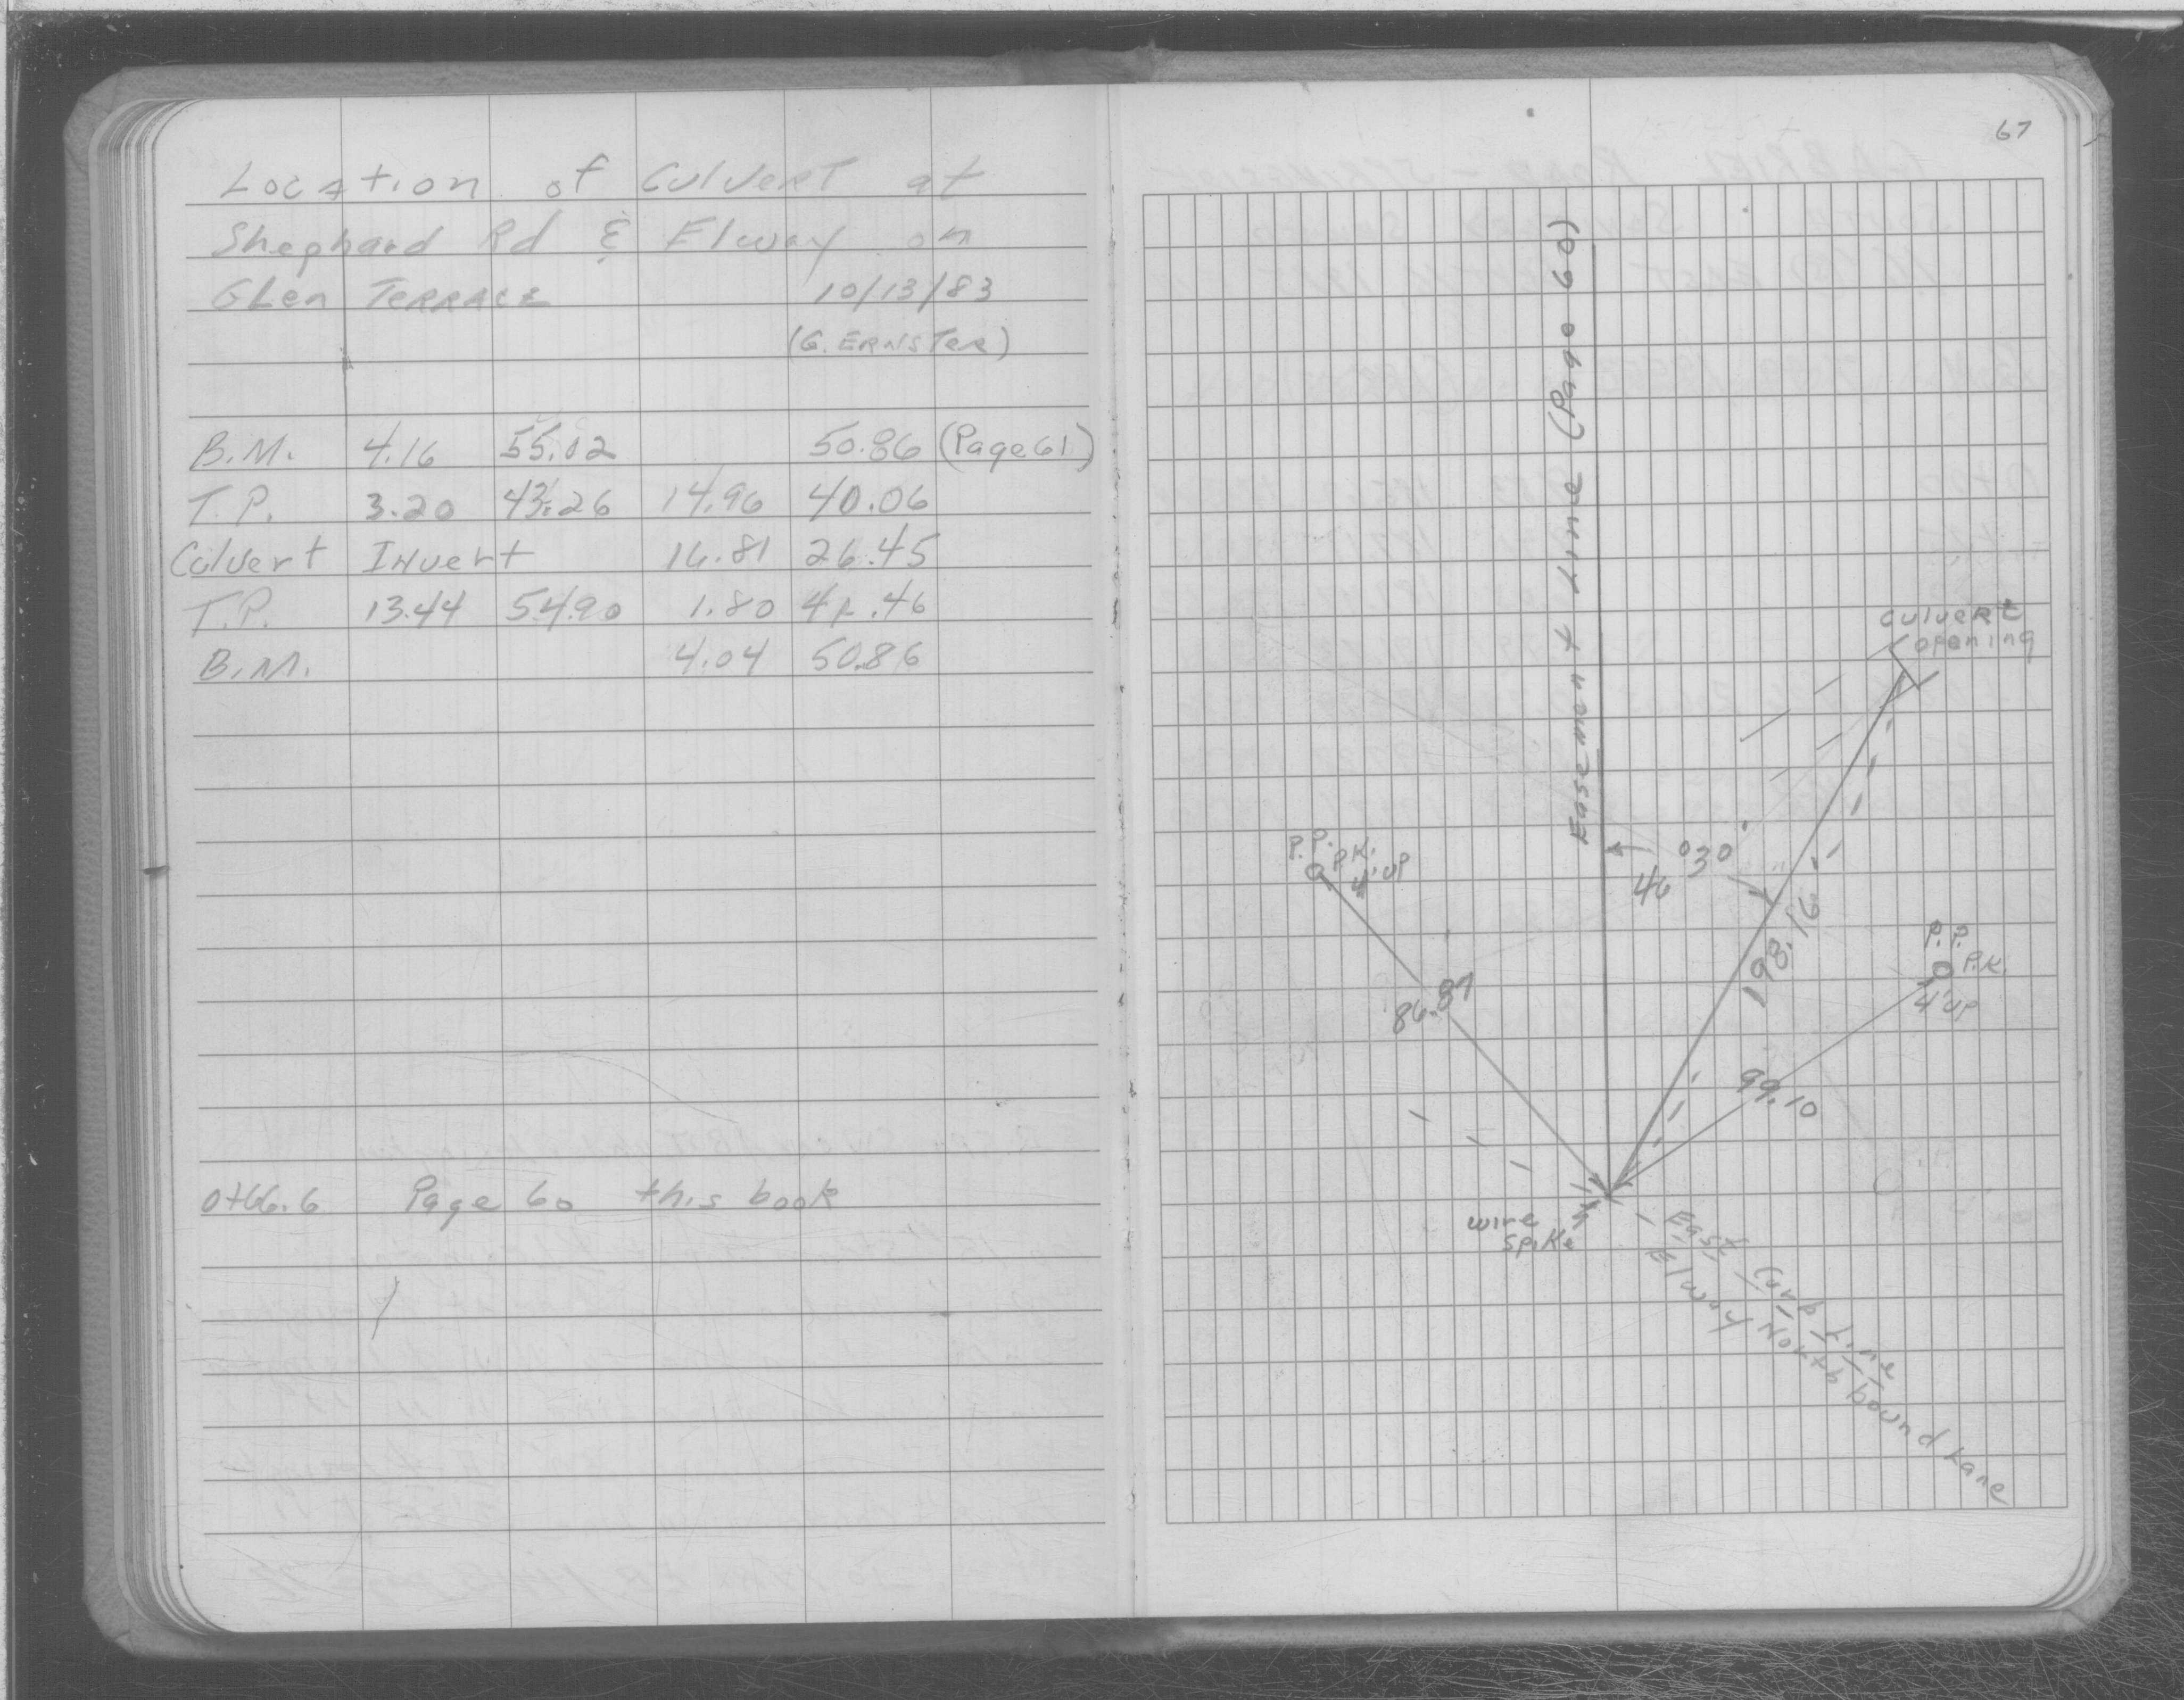 Location of Culvert at
Shephard Rd & Elway on
Glen Terrace 10/13/83
(G. Ernster)
B.M. 4.16 55.02 50.86 (Page 61)
T.P. 3.20 43.26 14.96 40.06
Culvert Invert 16.81 26.45
T.P. 13.44 54.90 1.80 41.46
B.M. 4.04 50.86
0+66.6 Page 60 this book
67
Easement Line (Page 60)
Culvert
opening
P.P.
P.K.
4' UP
46°30'
198.16
P.P.
P.K.
4' UP
86.87
99.10
wire
spike
East Curb Line
Elway North bound Lane